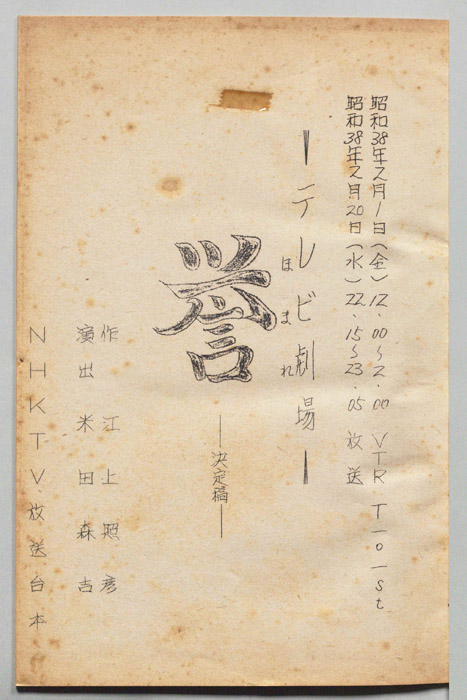 昭和38年2月1日(金)12.00〜2.00 VTR T-101St
昭和38年2月20日(水)22.15〜23.05 放送
―テレビ劇場―
ほまれ
誉
―決定稿―
作 江上照彦
演出 米田森吉
NHKTV放送台本